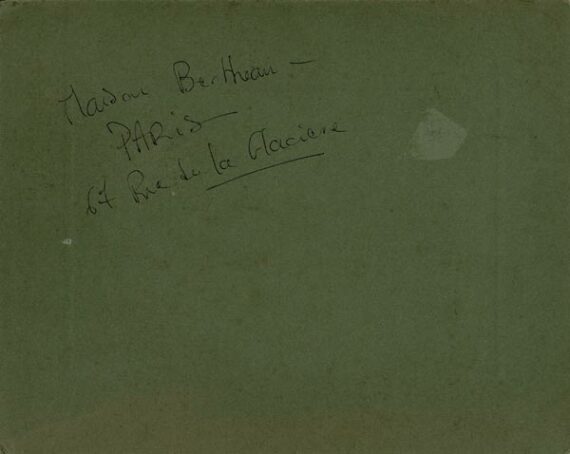 Maison Bertheau –
PARIS
67 Rue de la Glacière